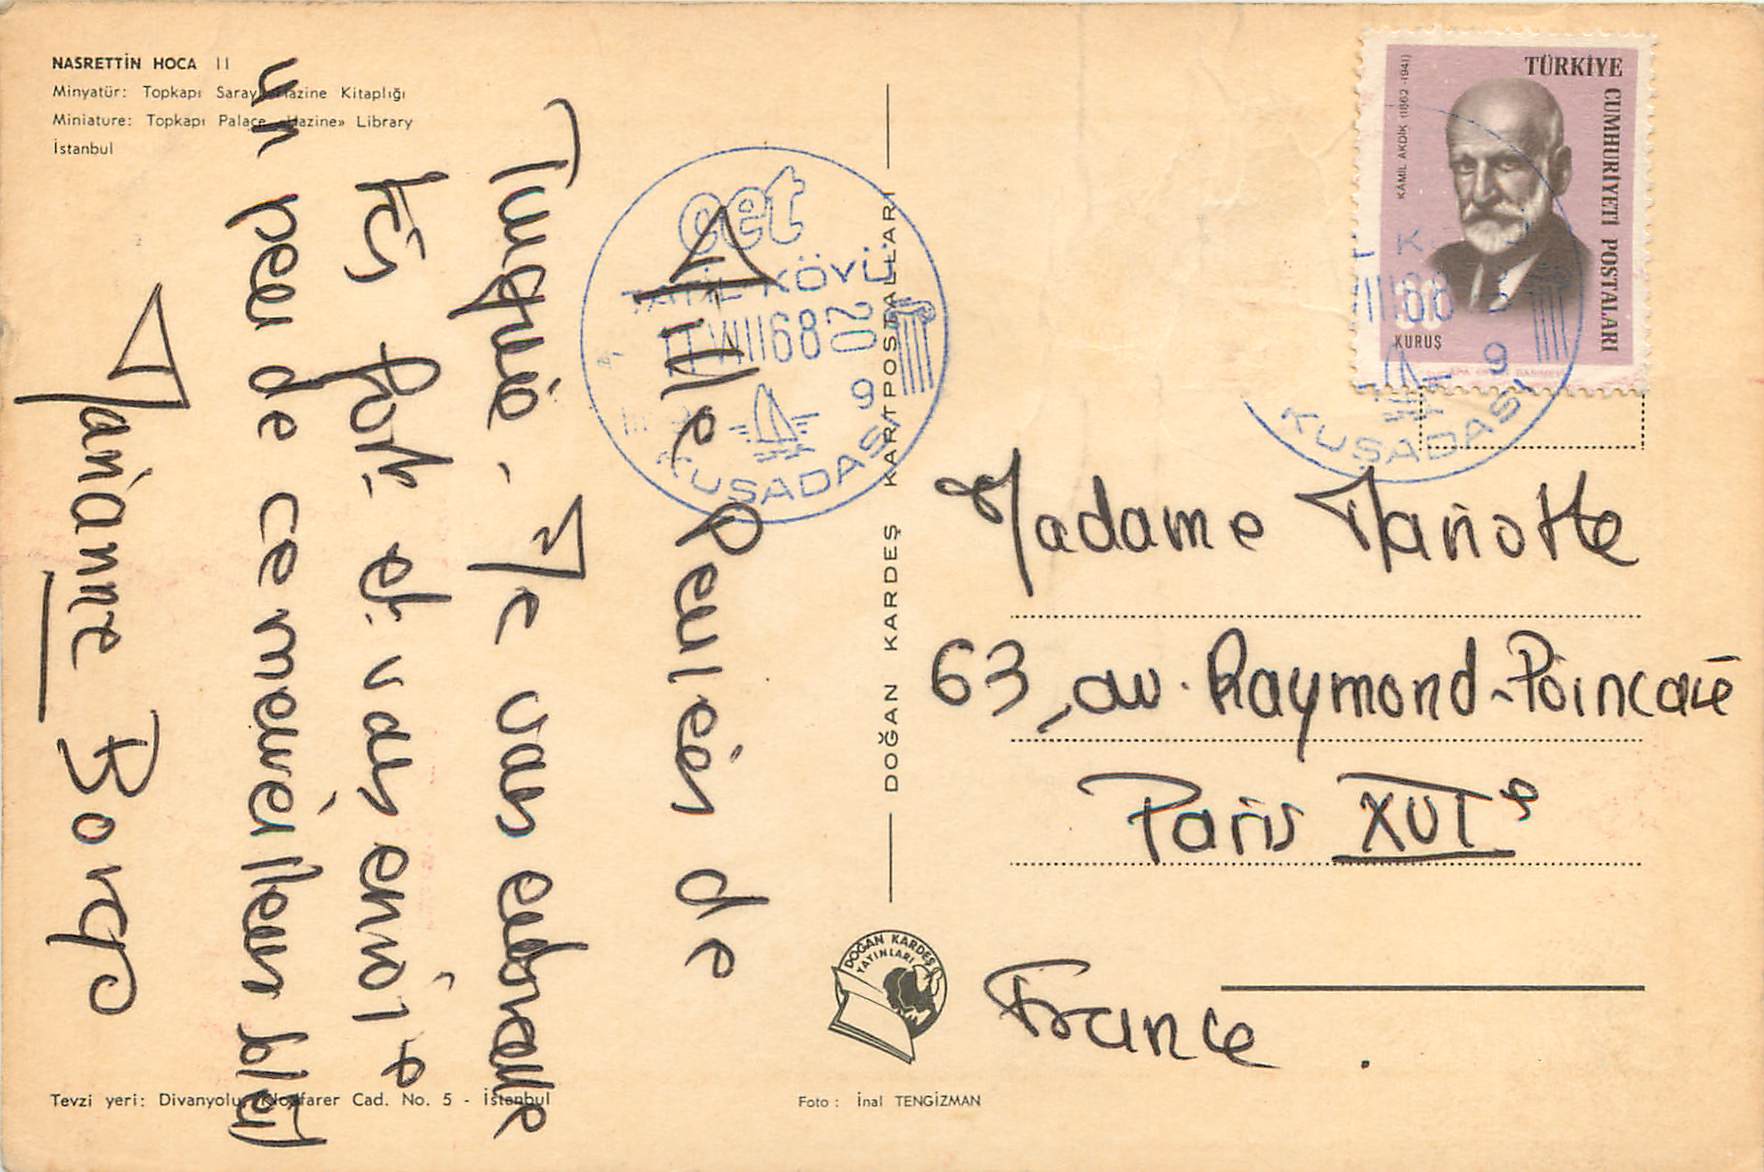 NASRETTİN HOCA II
Minyatür: Topkapı Sarayı Hazine Kitaplığı
Miniature: Topkapı Palace «Hazine» Library
İstanbul
Mille pensées de
Turquie. Je vous embrasse
très fort et vous envoie
un peu de ce merveilleux bleu
Marianne Borgo
Tevzi yeri: Divanyolu, Klodfarer Cad. No. 5 - İstanbul
Foto : İnal TENGİZMAN
DOĞAN KARDEŞ KARTPOSTALLARI
DOĞAN KARDEŞ
YAYINLARI
cet
TATİL KÖYÜ
11 VIII 68 20
9
KUŞADASI
TÜRKİYE
CUMHURİYETİ POSTALARI
KAMİL AKDİK (1862-1941)
KURUŞ
K
III 68
9
KUŞADASI
Madame Mariotte
63, av. Raymond-Poincaré
Paris XVIe
France.